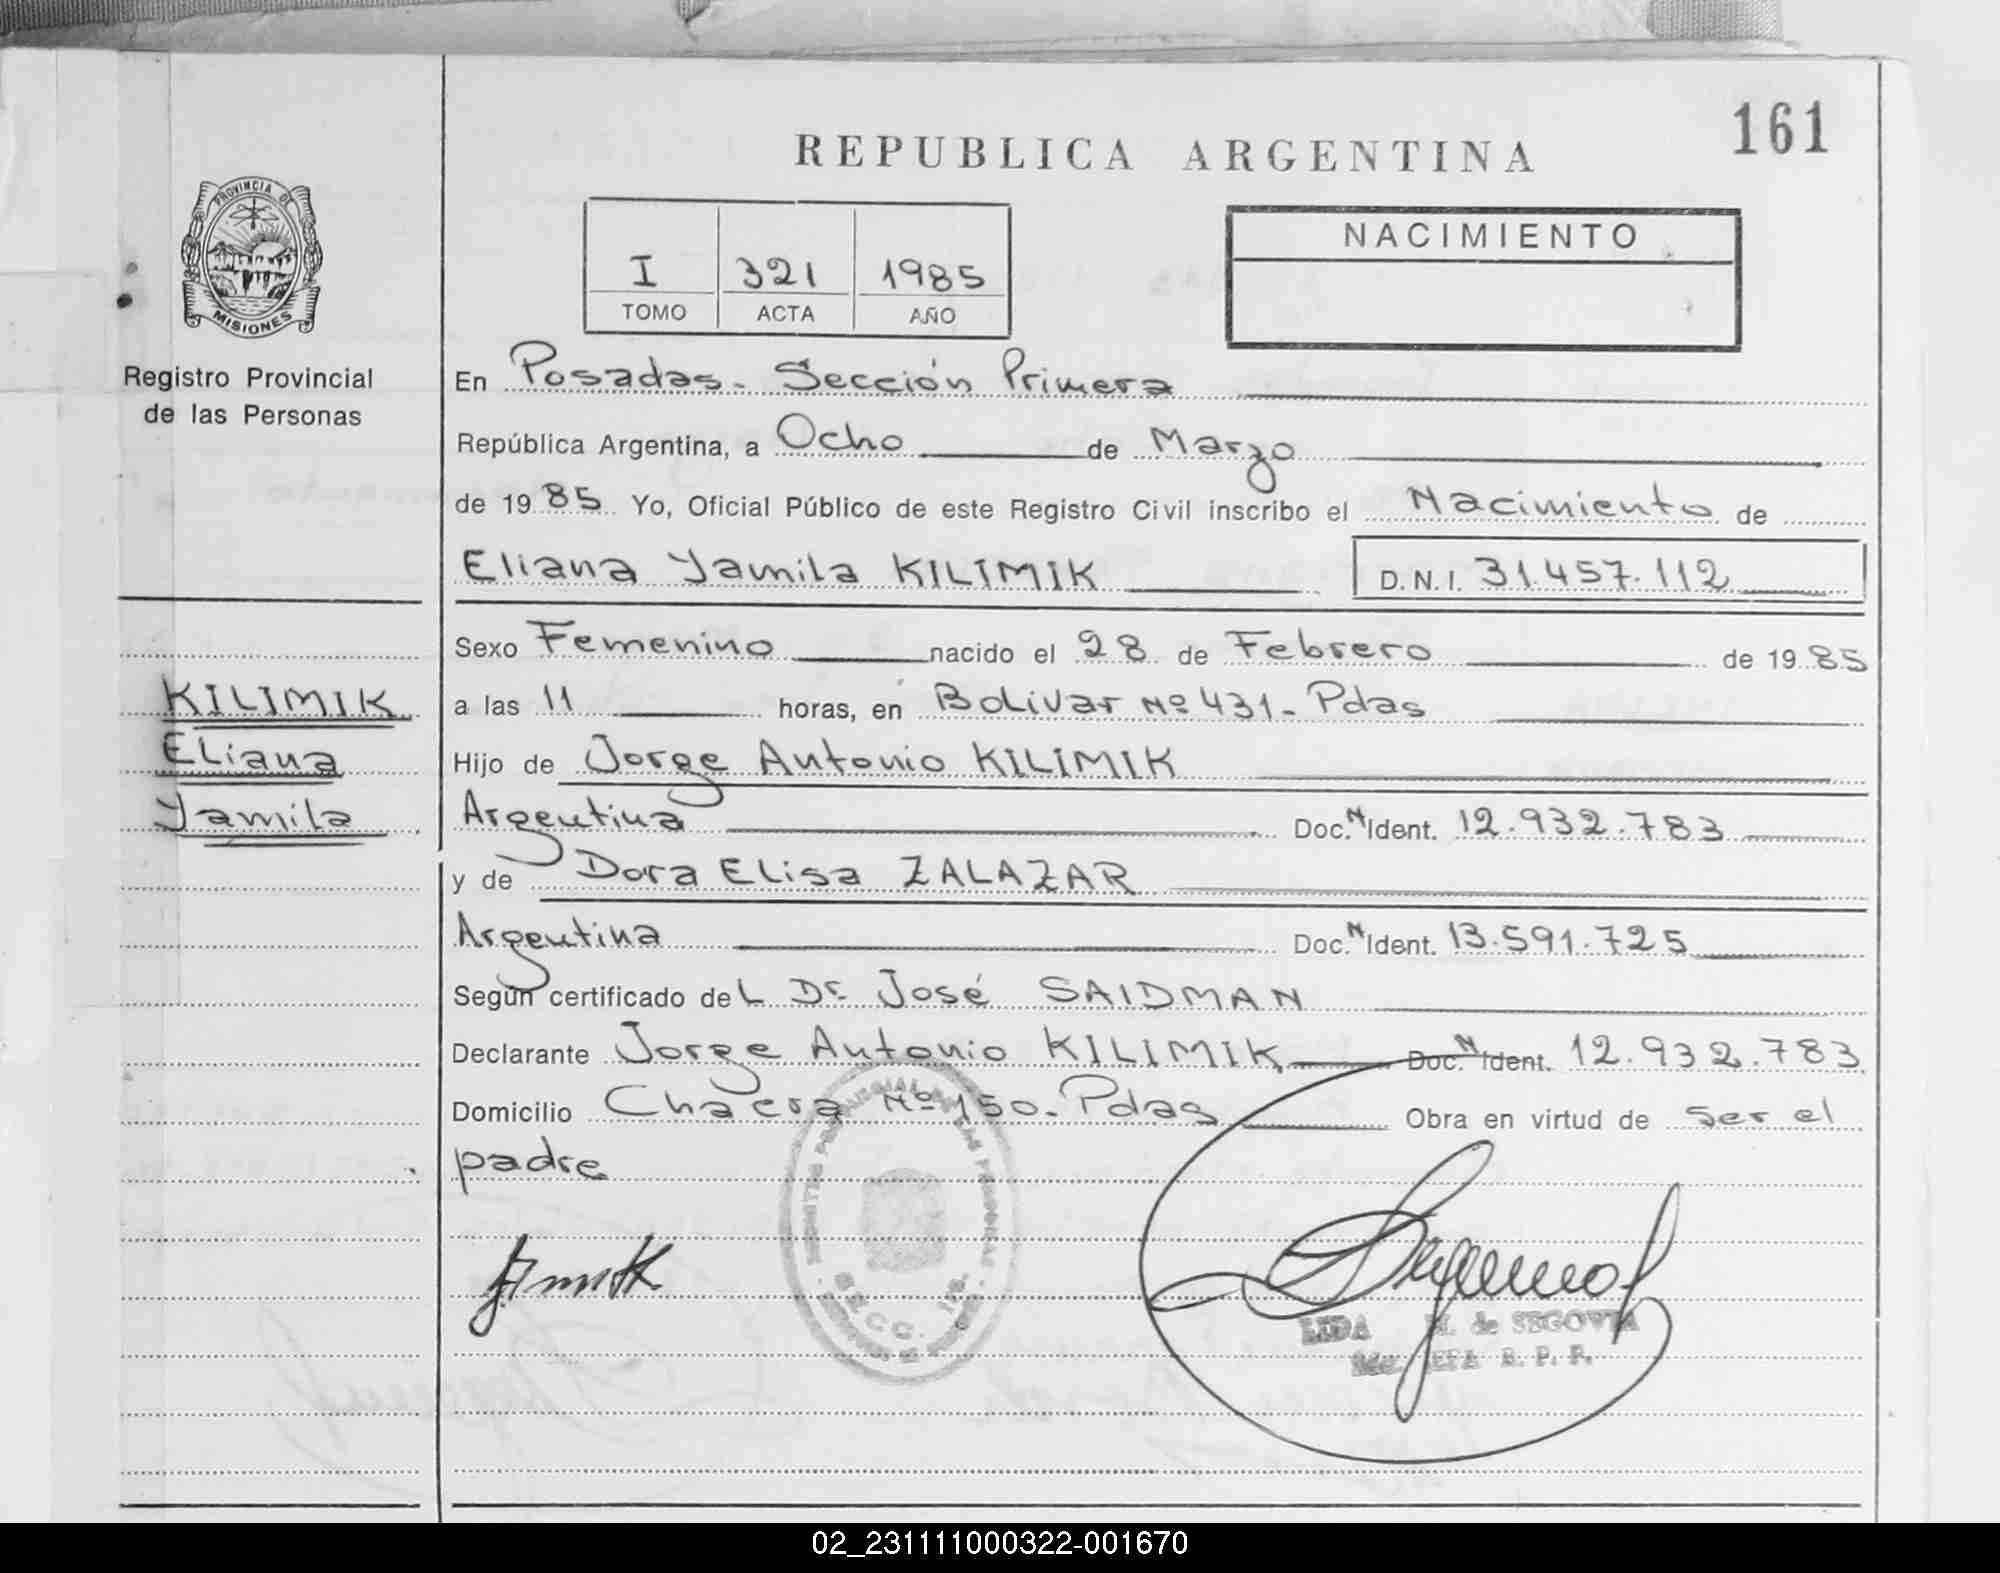 161
REPUBLICA ARGENTINA
PROVINCIA DE
MISIONES
Registro Provincial
de las Personas
I 321 1985
TOMO ACTA AÑO
NACIMIENTO
En Posadas - Sección Primera
República Argentina, a Ocho de Marzo
de 19 85 Yo, Oficial Público de este Registro Civil inscribo el Nacimiento de
Eliana Yamila KILIMIK D.N.I. 31.457.112
Sexo Femenino nacido el 28 de Febrero de 19 85
KILIMIK
Eliana
Yamila
a las 11 horas, en Bolivar Nº 431 - Pdas
Hijo de Jorge Antonio KILIMIK
Argentina Doc. N Ident. 12.932.783
y de Dora Elisa ZALAZAR
Argentina Doc. N Ident. 13.591.725
Según certificado del Dr José SAIDMAN
Declarante Jorge Antonio KILIMIK Doc. N Ident. 12.932.783
Domicilio Nº 150 - Pdas Obra en virtud de ser el
padre
SECC. 1ra.
LIDA M. de SEGOVIA
R. P. P.
02_231111000322-001670